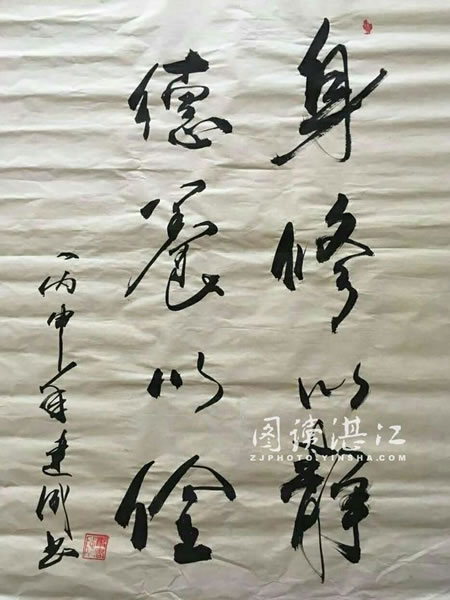 身修以靜
德養以俭
丙申年建成书
图读湛江
ZJPHOTO.YINSHA.COM